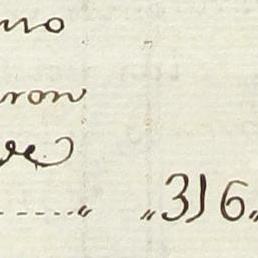 mo
ron
de
......„ „316„